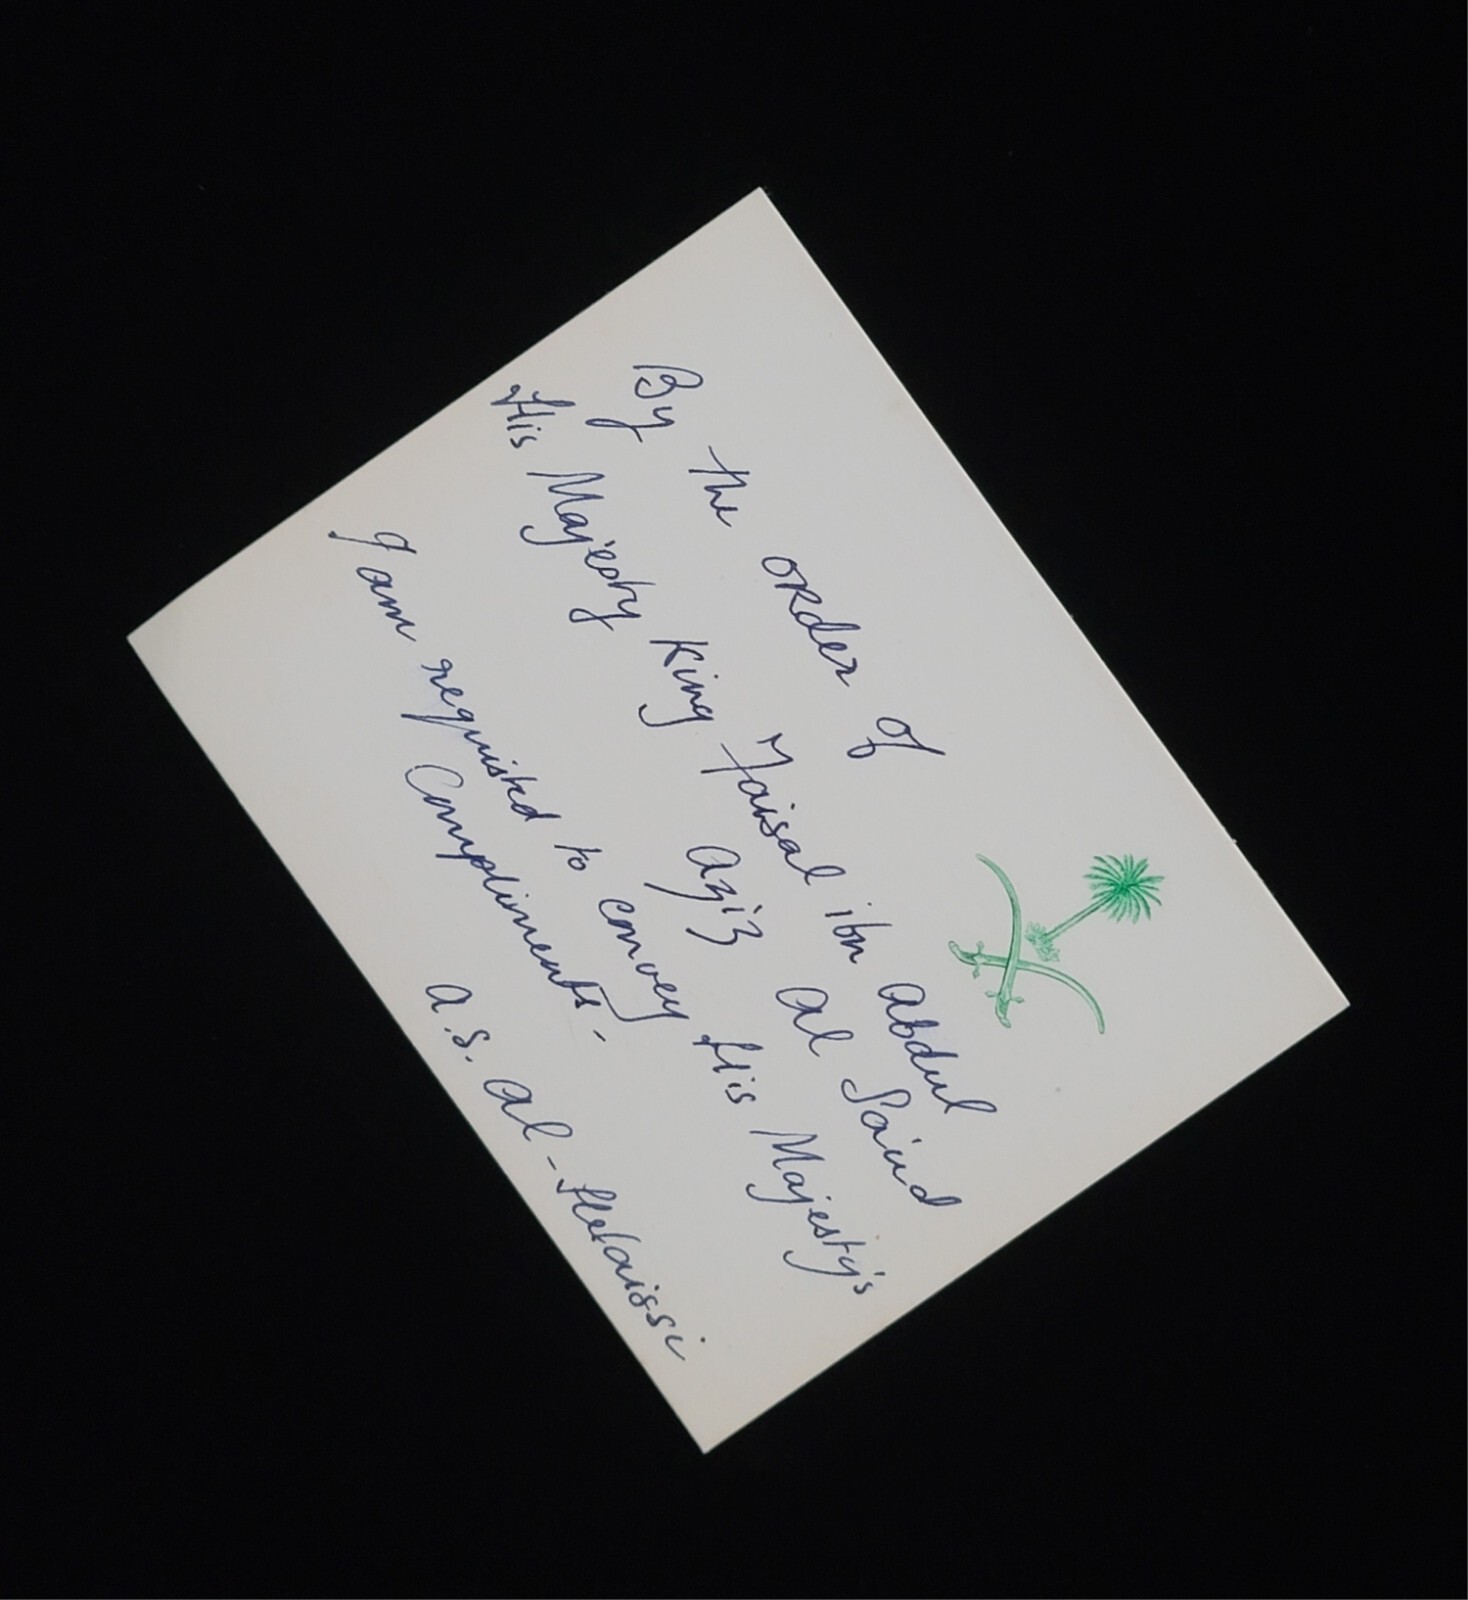 By the order of
His Majesty King Faisal ibn Abdul
Aziz Al Saud
I am requisted to convey His Majesty's
Compliments-
A.S. Al-Helaissi